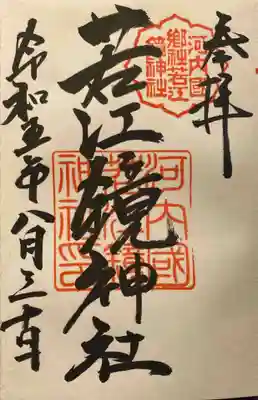 奉拝
河内國
郷社若江
鏡神社
若江鏡神社
河内國
神社印
令和五年八月三十日